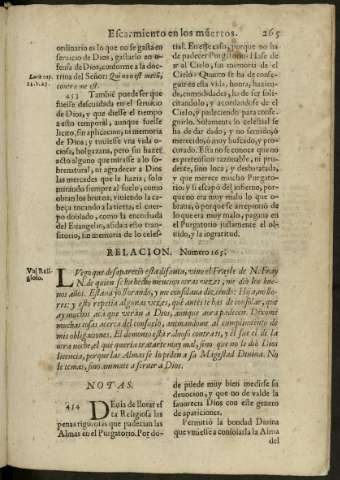 Escarmiento en los muertos. 265
ordinario es lo que no se gasta en
servicio de Dios, gastarlo en ofensa
de Dios, conforme a la doctrina
del Señor: Qui non est mecũ,
contra me est.
453 Tambié puede ser que
fuesse descuidada en el servicio
de Dios, y que diesse el tiempo
a esto temporal, aunque fuesse
licito, sin aplicacion, ni memoria
de Dios; y tuviesse vna vida ociosa,
holgazana, pero sin hazer
acto alguno que mirasse a lo sobrenatural,
ni agradecer a Dios
las mercedes que la hazia; solo
mirando siempre al suelo, como
obran los brutos, viniendo la cabeça
torcida a la tierra, el cuerpo
doblado, como la encorvada
del Evangelio, asida a esto transitorio,
sin memoria de lo celestial.
En esse caso, porque no ha
de padecer Purgatorio? Hase de
ir al Cielo, sin memoria del
Cielo? Quanto se ha de conseguir
en esta vida, honra, hazienda,
comodidades, lo de ser solicitandolo,
y acordandose el
Cielo, y padeciendo para conseguirlo.
Solamente lo celestial se
ha de dar dado, y no servido, ó
merecido, ó muy buscado, y procurado.
Esta no se conoce que no
es pretension razonable, ni prudente,
sino loca, y desbaratada,
y que merece mucho Purgatorio;
y si escapó del infierno, porque
no era muy malo lo que obrava,
ó porque se arrepintió de
lo que era muy malo, pagana en
el Purgatorio justamente el olvido,
y la ingratitud.
RELACION. Numero 165.
LVego que desapareciò esta difunta, vino el Frayle de N. Fray
N. de quien se ha hecho mencion otras vezes, me diò los buenos
años. Estava yo llorando, y me consolava diziendo: Hija, no llores:
y esto repetia algunas vezes, què antes te has de consolar, que
ay muchos acà que veràn a Dios, aunque aora padecen. Dixome
muchas cosas acerca del consuelo, animandome al cumplimiento de
mis obligaciones. El demonio està rabioso contra ti, y el fue el de la
otra noche, el què queria tratarte muy mal, sino que no le diò Dios
licencia, porque las Almas se lo piden a su Magestad Divina. No
le temas, sino animate a servir a Dios.
NOTAS.
454 DEvia de llorar esta
Religiosa las
penas rigurosas que padecian las
Almas en el Purgatorio. Por donde
puede muy bien medirse su
devocion, y que no de valde la
favorecia Dios con este genero
de apariciones.
Permitiò la bondad Divina
que viniesse a consolarla la Alma
del